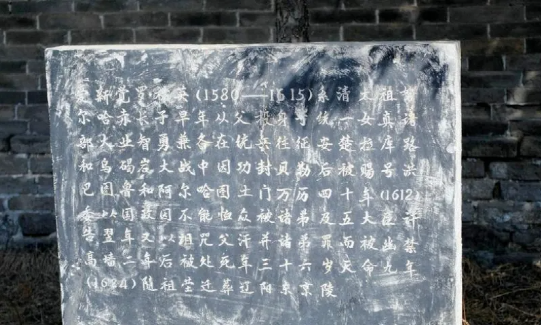 爱新觉罗褚英(1580——1615)系清太祖努
尔哈赤长子早年从父投身统一女真诸
部大业智勇兼备在统兵征安楚拉库路
和乌碣岩大战中因功封贝勒后被赐号洪
巴图鲁和阿尔哈图土门万历四十年(1612)
告翌年又以咒父汗并诸弟罪而被幽禁
高墙二年后被处死年三十六岁天命九年
(1624)随祖茔迁葬辽阳东京陵